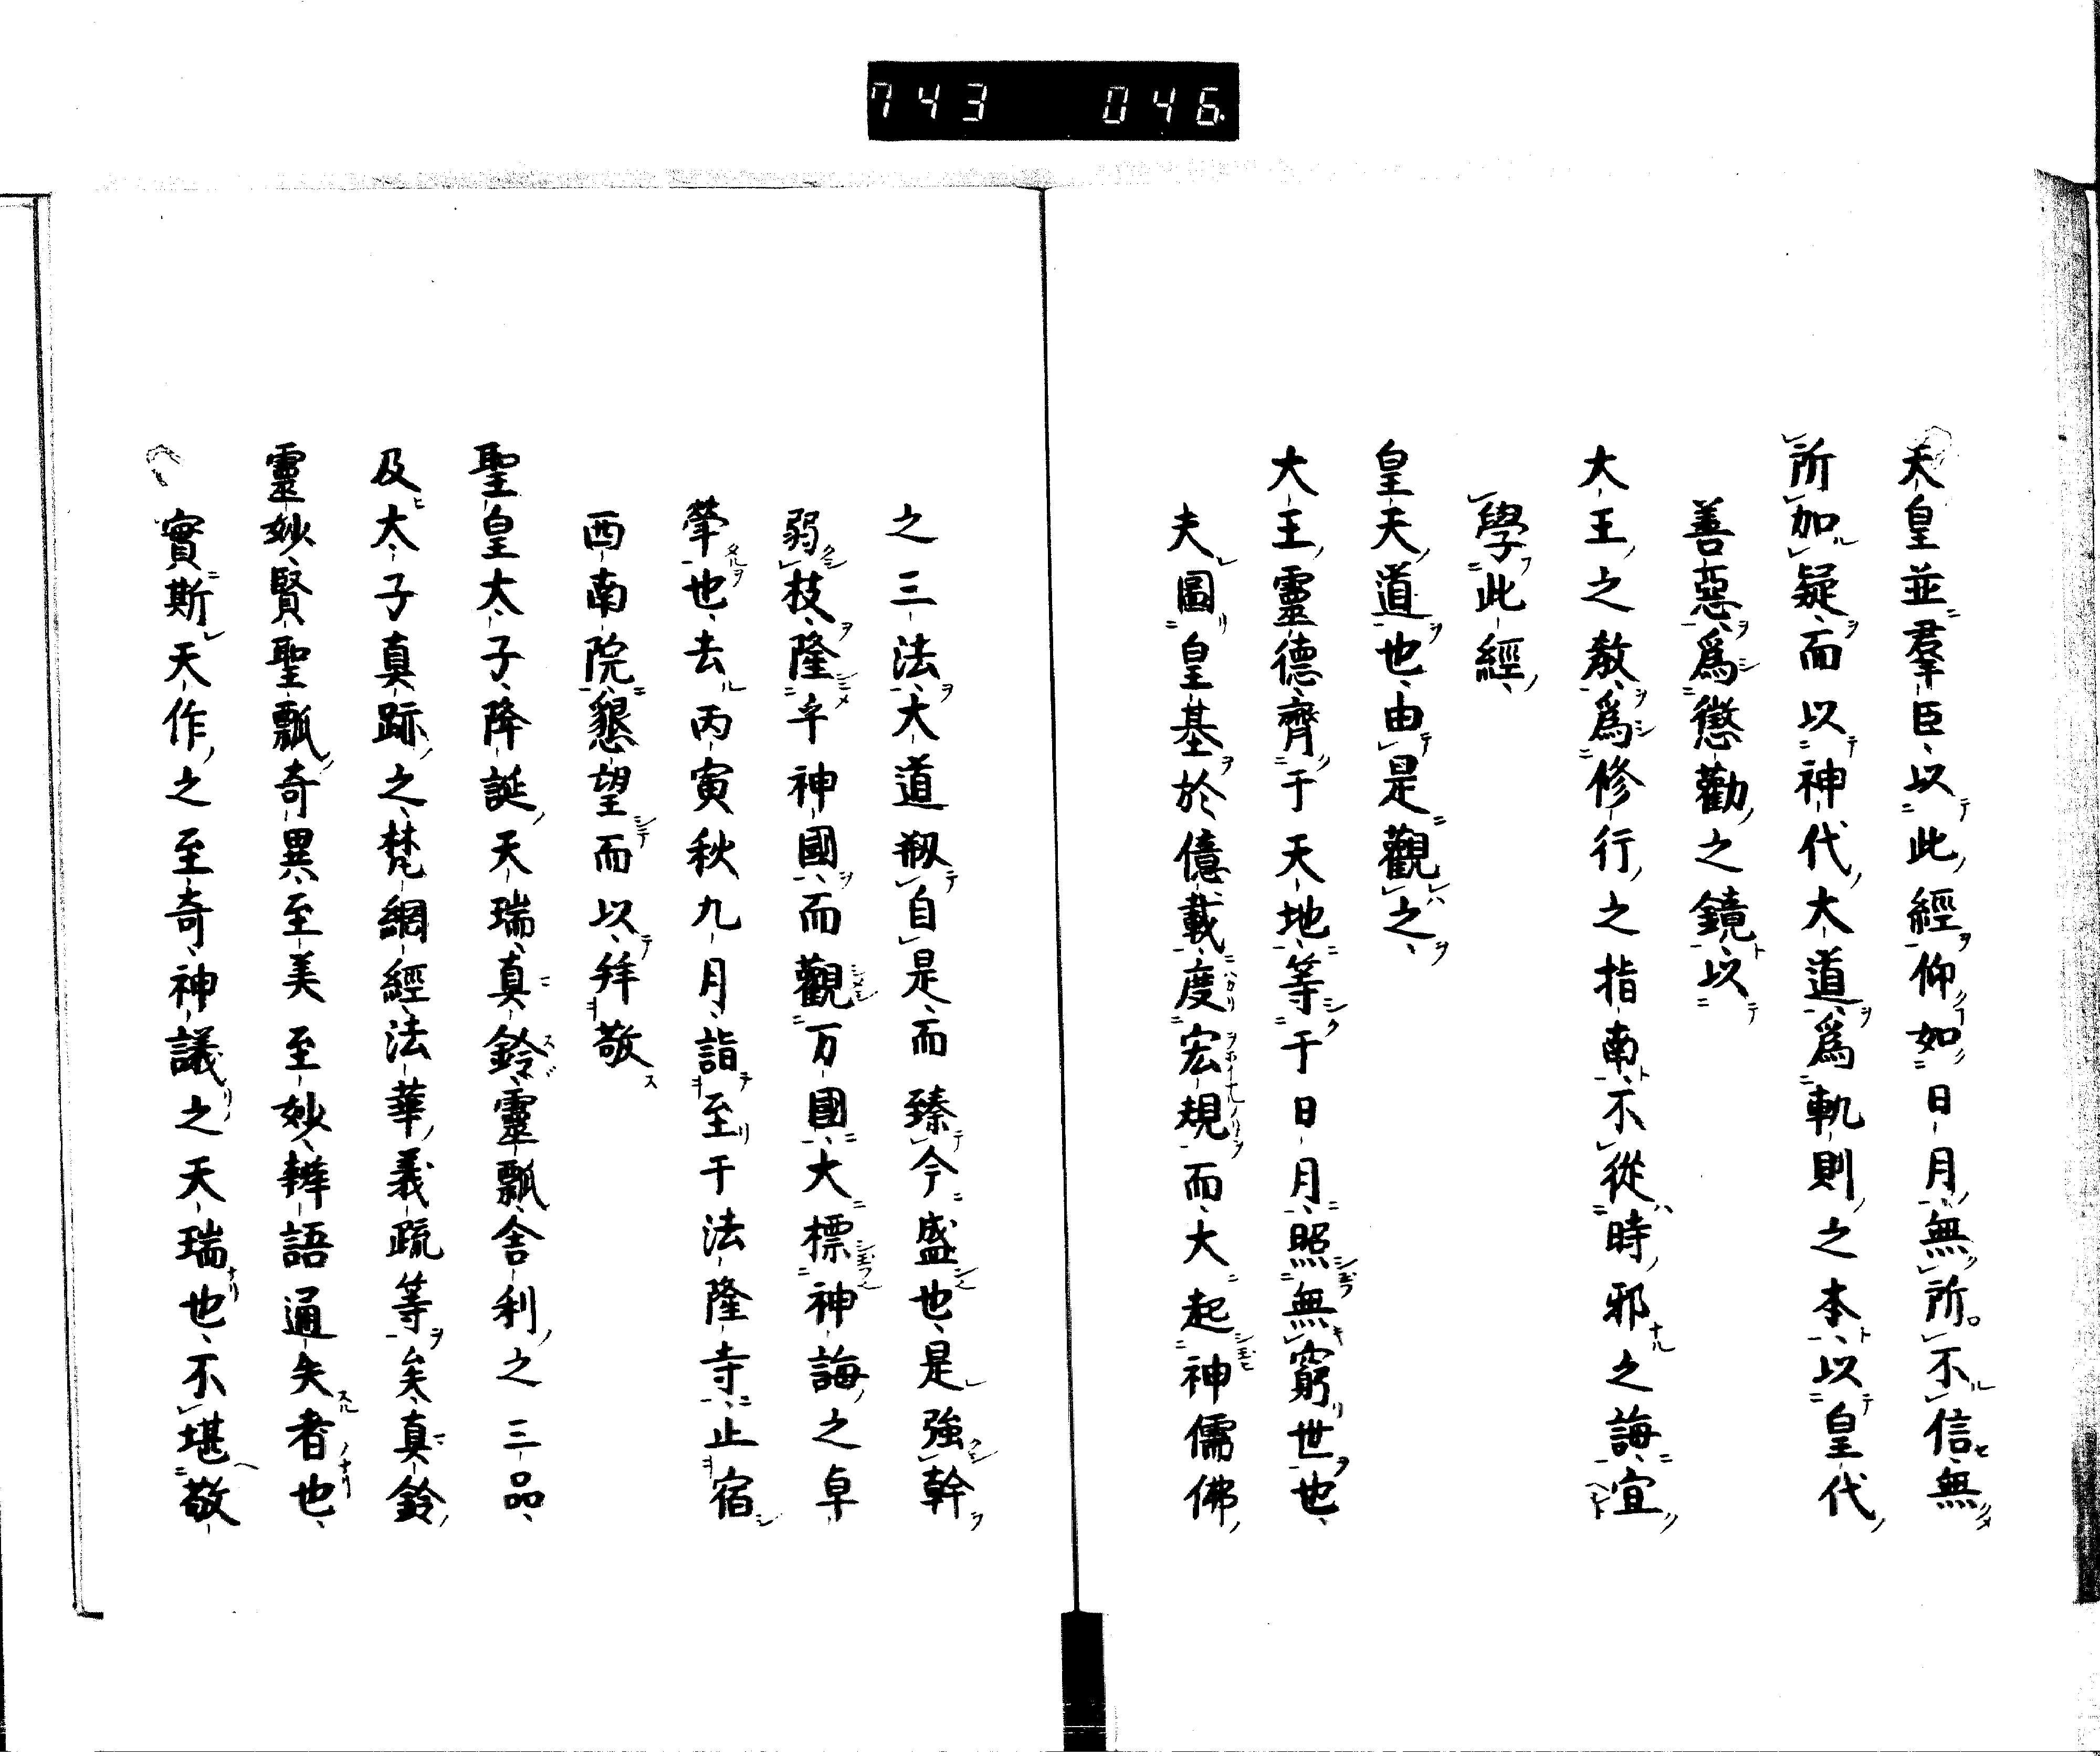 743 046
天皇並羣臣以此經仰如日月無所不信無
所加疑而以神代大道爲軌則之本以皇代
善惡爲懲勸之鏡以
大王之敎爲修行之指南不從時邪之誨宜
學此經
皇天道也由是觀之
大王靈德齊于天地等于日月照無窮世也
夫圖皇基於億載度宏規而大起神儒佛
之三法大道剏自是而臻今盛也是強幹
弱枝隆乎神國而觀万國大標神誨之卓
犖也去丙寅秋九月詣至于法隆寺止宿
西南院懇望而以拜敬
聖皇太子降誕天瑞真鈴靈瓢舍利之三品
及太子真跡之梵網經法華義疏等矣真鈴
靈妙賢聖瓢奇異至美至妙辨語通矢者也
實斯天作之至奇神議之天瑞也不堪敬